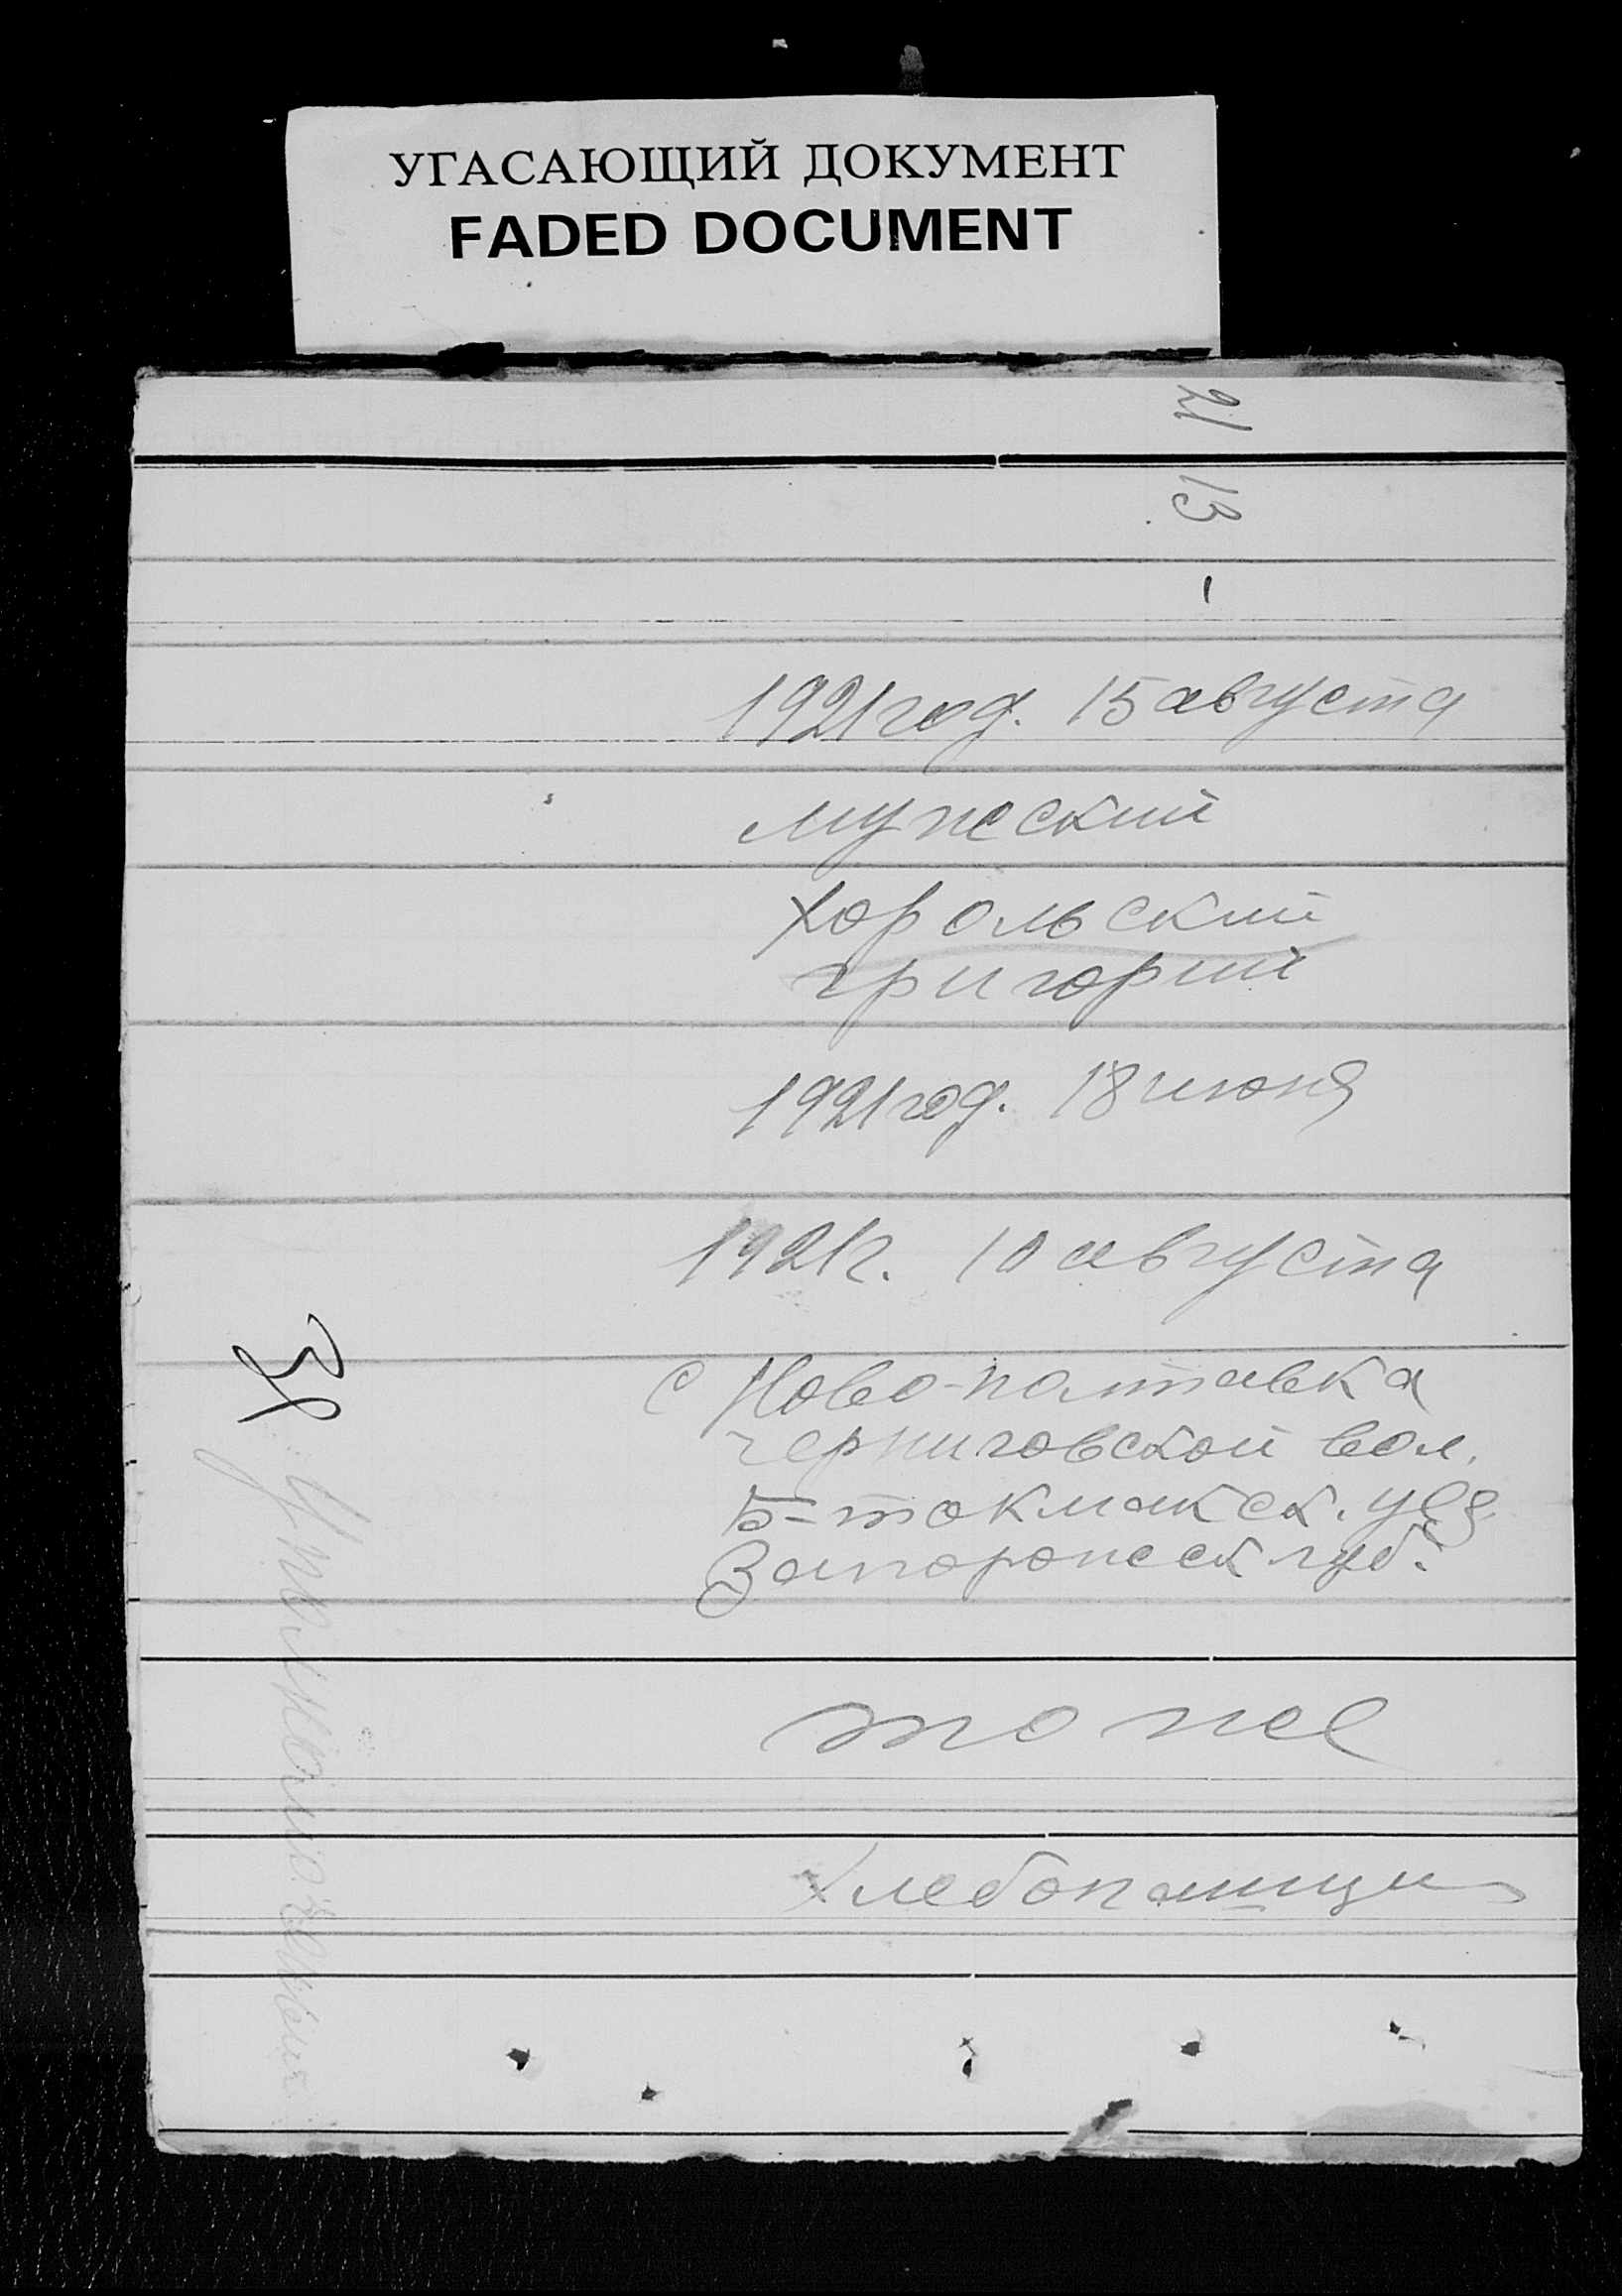 УГАСАЮЩИЙ ДОКУМЕНТ
FADED DOCUMENT
21
13
1921 год. 15 августа
мужский
Хорольский
григорий
1921 год. 18 июня
1921 г. 10 августа
с Ново-полтавка
черниговской вол.
Б-токмакск. уез
Запорожск губ.
тоже
31
Хлебопашцы